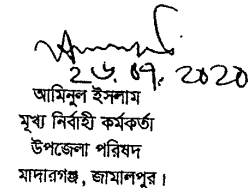 ২৬.০৭.২০২০
আমিনুল ইসলাম
মূখ্য নির্বাহী কর্মকর্তা
উপজেলা পরিষদ
মাদারগঞ্জ, জামালপুর।